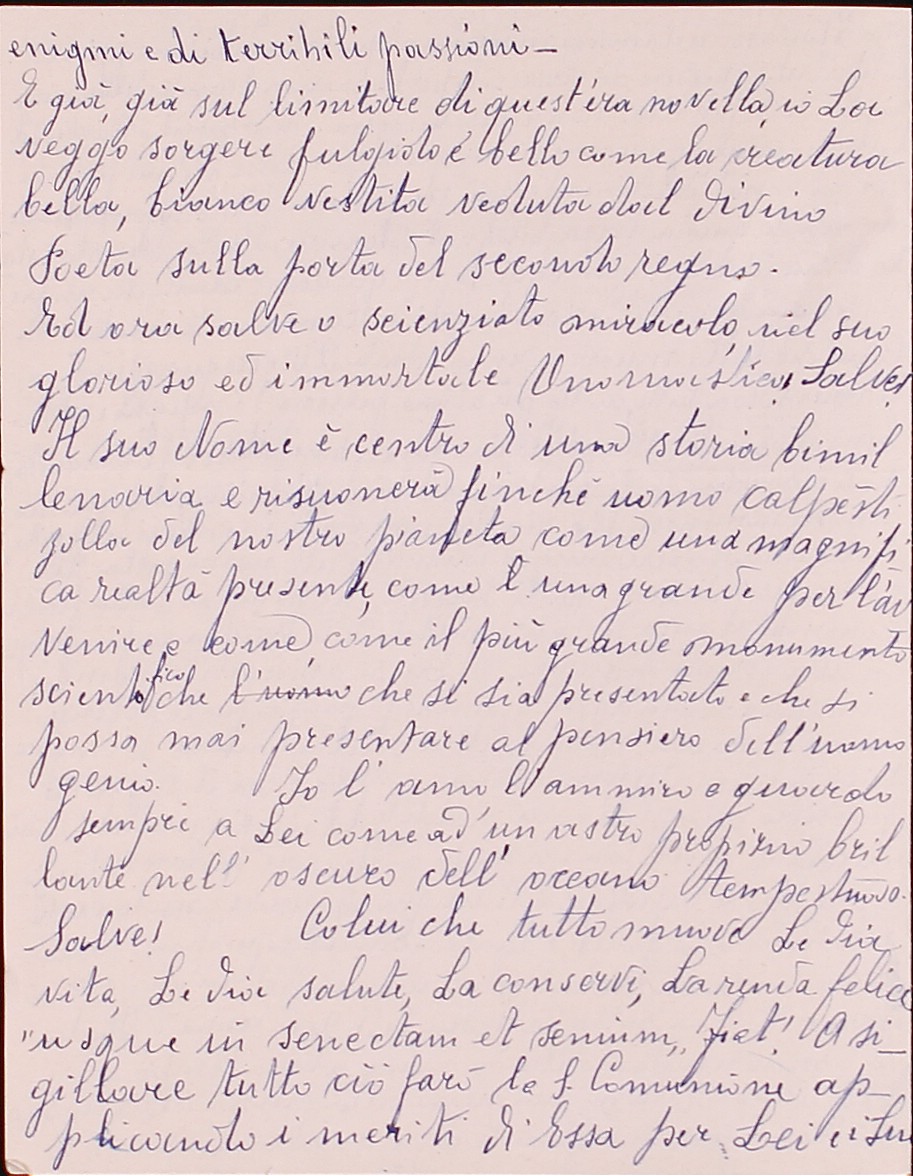 enigmi e di terribili passioni –
E già, già sul limitare di quest'èra novella, io La
veggo sorgere fulgido e bello come la creatura
bella, bianco vestita veduta dal divino
Poeta sulla porta del secondo regno.
Ed ora salve o scienziato miracolo, nel suo
glorioso ed immortale Onomastico, Salve!
Il suo Nome è centro di una storia bimil
lenaria e risuonerà finché uomo calpesti
zolla del nostro pianeta come una magnifi
ca realtà presente, come una grande per l'av
venire e come come il più grande monumento
scientifico che l'uomo che si sia presentato e che si
possa mai presentare al pensiero dell'uomo
genio. Io l'amo l'ammiro e guardo
sempre a Lei come ad un astro propizio bril
lante nell'oscuro dell'oceano tempestuoso.
Salve! Colui che tutto muove Le dia
vita, Le dia salute, La conservi, La renda felice
"usque in senectam et senium," Fiat! A si–
gillare tutto ciò farò la S. Comunione ap–
plicando i meriti di Essa per Lei